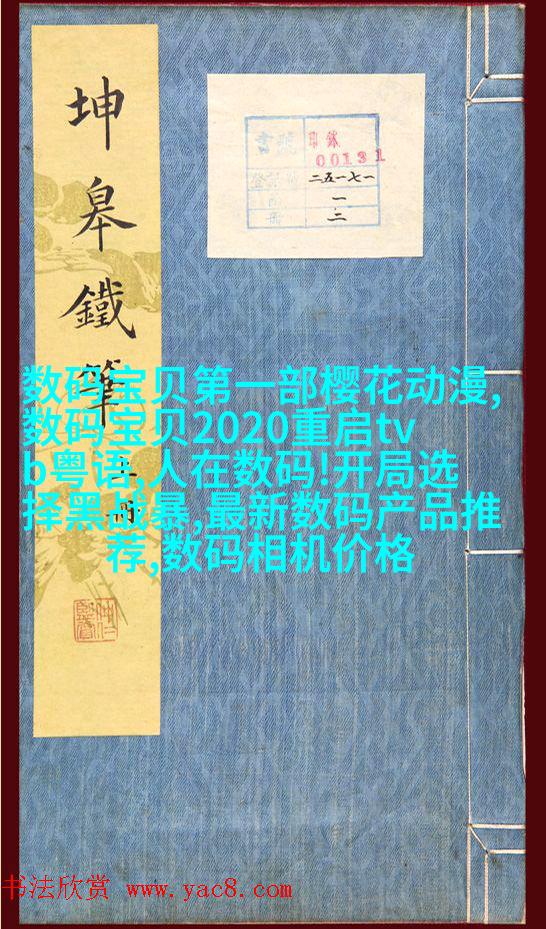 坤皋鐵筆
書號
印錄
00131
登記號
二五一七一
一
冊
二
数码宝贝第一部樱花动漫,
数码宝贝2020重启tv
b粤语,人在数码!开局选
择黑战暴,最新数码产品推
荐,数码相机价格
书法欣赏 www.yac8.com